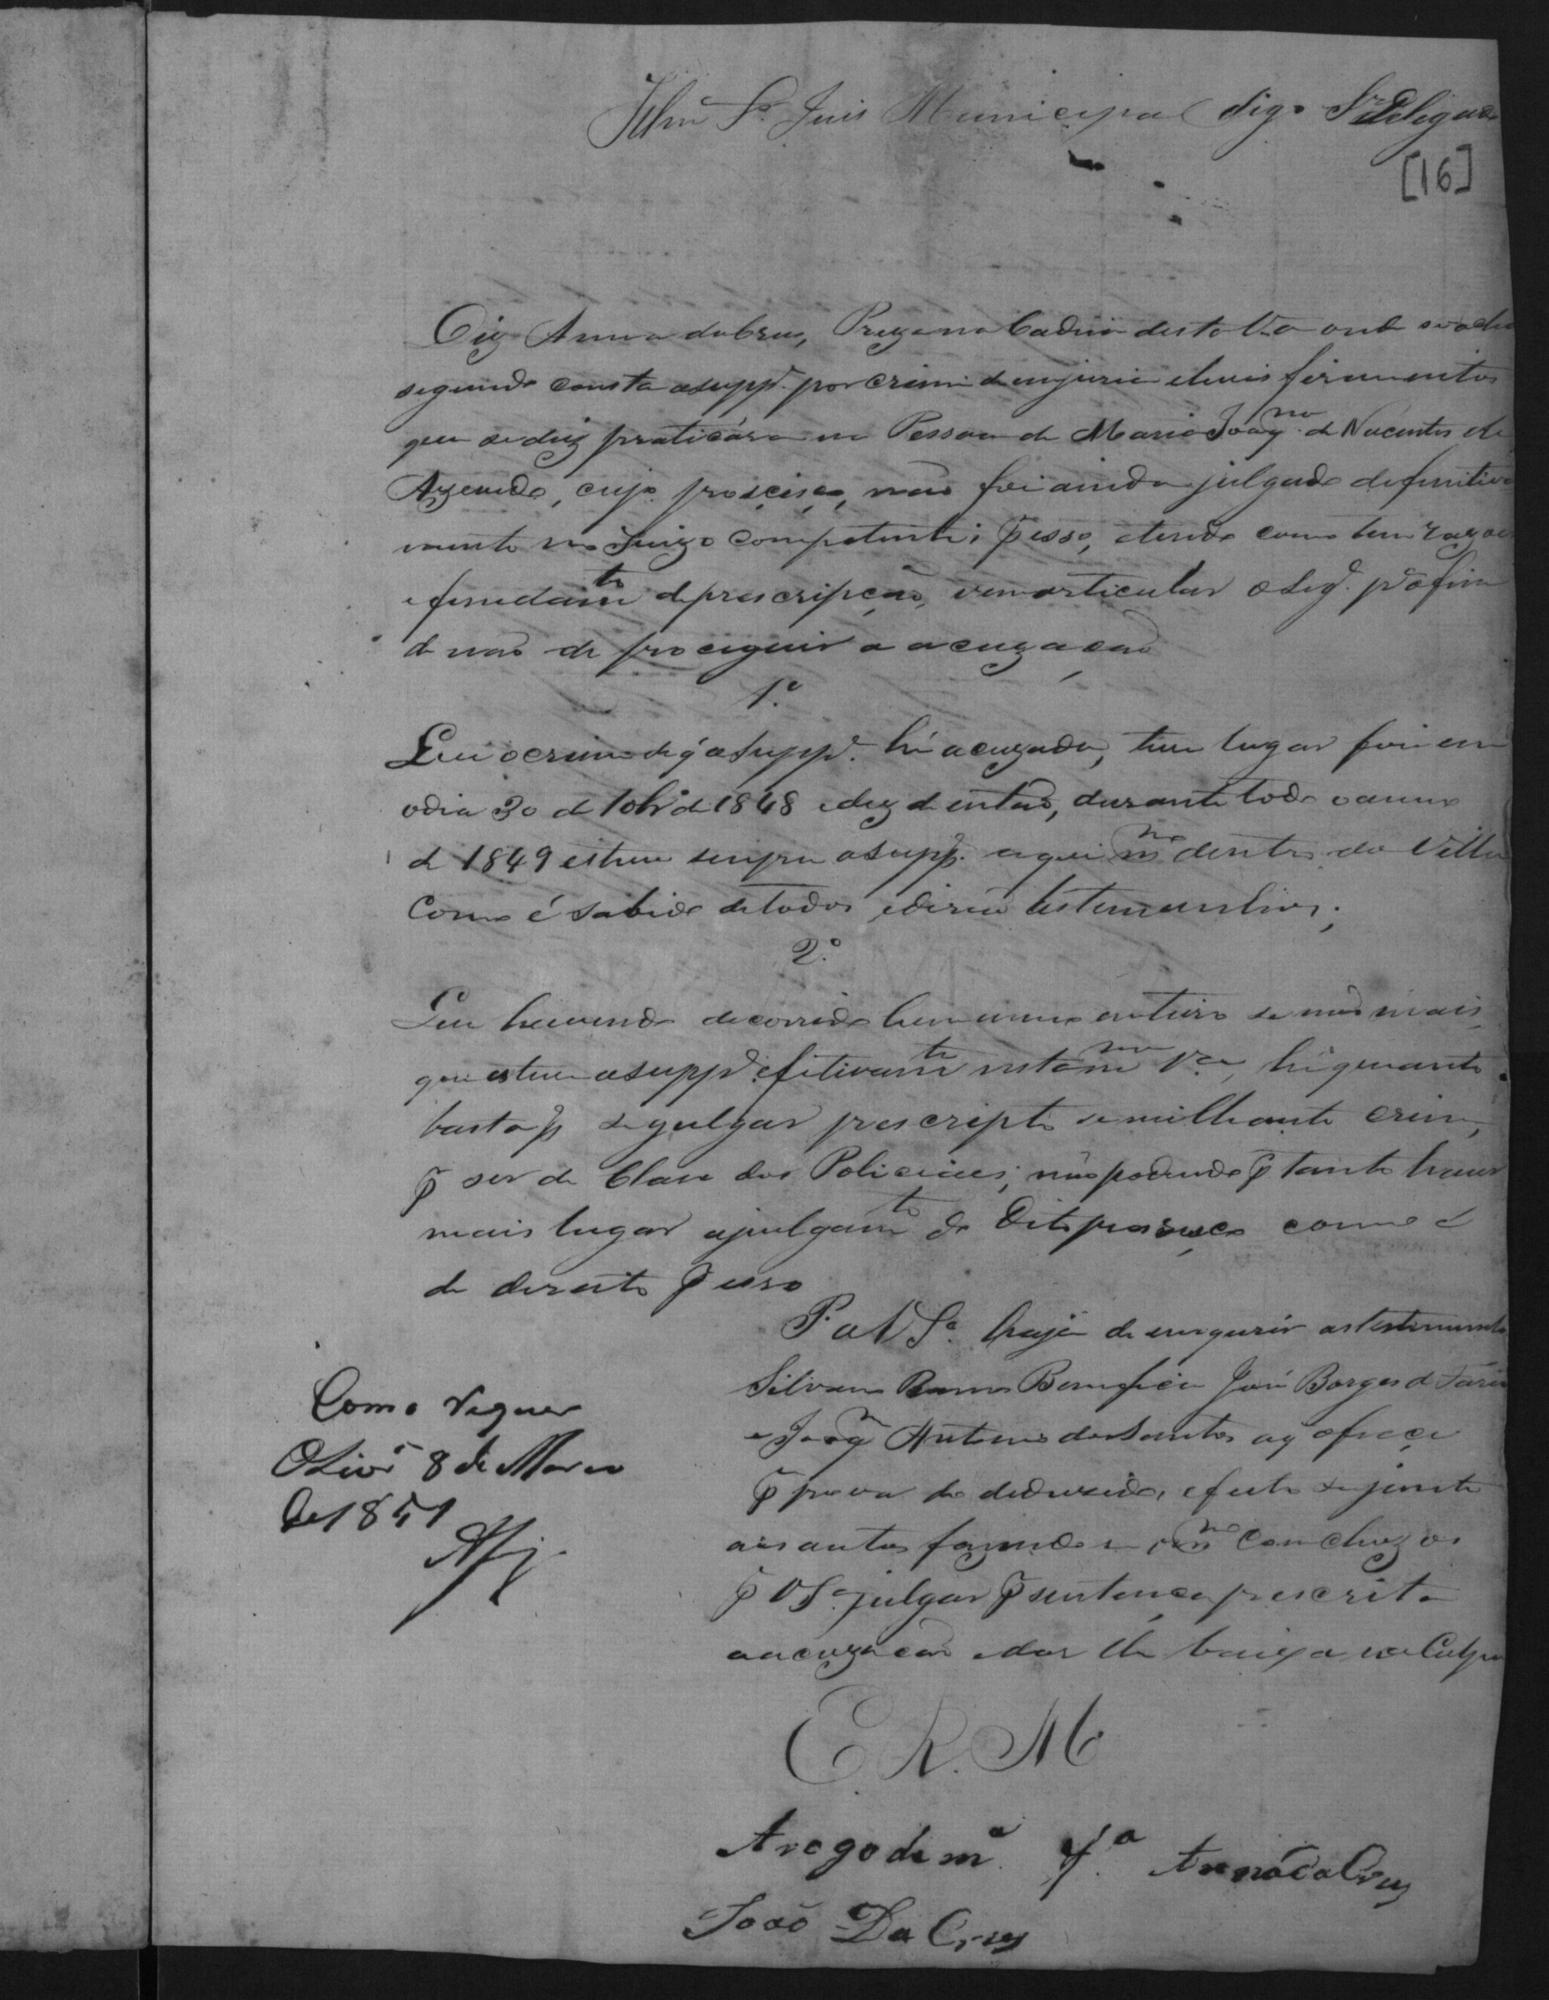 Illm Sr. Juis Municipal digo Sr. Delegado
[16]
Diz Anna da Crus, Preza na Cadeia desta Va onde se acha
segundo consta a supp.e por crime de injuria e leves ferimentos
que se diz praticára na Pessoa de Maria Joaq.na de Nacentes de
Azevedo, cujo proscéço, não foi ainda julgado definitiva
mente no Juizo competente; p isso, e tendo como tem razão
e fundam.to de prescripção, vem articular o seg.e p.a o fim
de não de proceguir a acuzação
1.º
Que o crime de q a Supp.e hé acuzada, teve lugar foi em
o dia 30 de 10br.o de 1848 e dez de então, durante todo o anno
de 1849 esteve sempre a Supp.e aqui m.mo dentro da Villa
Como é sabido de todos, e dirão testemunhas;
2.º
Que havendo decorrido hum anno enteiro se não mais
que esteve a supp.e efetivam.te nesta m.ma V.a, hé quanto
basta p.a se julgar prescripto semilhante crime,
p ser da Clace dos Policiaes; não podendo p tanto haver
mais lugar a julgam.to do Dito prosseço como é
de direito p isso
P. a V S.a haja de inquerir as testemunhas
Silvano Ramos Bomfica José Borges de Faria
e Joaq.m Antonio dos Santos q ofrece
p prova do deduzido, e feito se junte
aos autos fazendo-se os m.mo concluzos
p V S.a julgar p sentença prescrita
a acuzação e dar lhe baixa na Culpa
E. R. M
Como requer
Olivr.a 8 de Março
de 1851
A rogo de m.a f.a Anna da Crus
João Da Crus